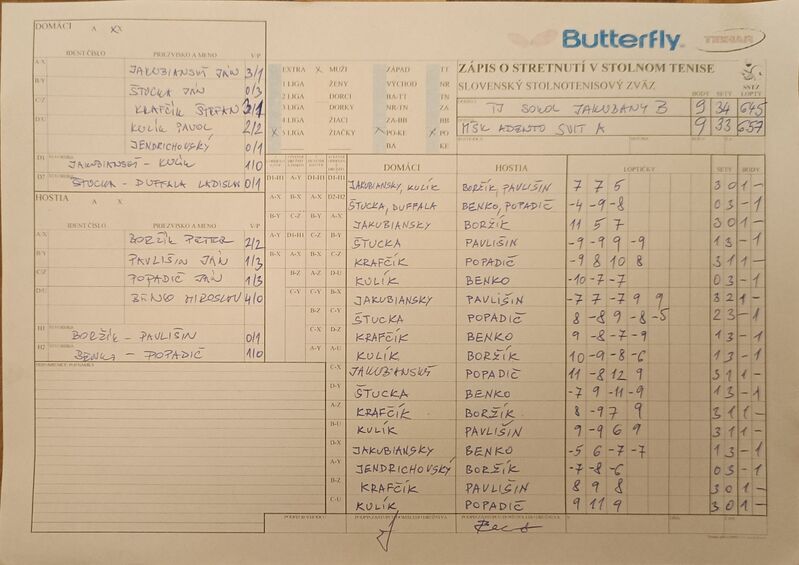 DOMÁCI A X
Butterfly
TREMAR
IDENT ČÍSLO PRIEZVISKO A MENO V/P
A/X JAKUBIANSKÝ JÁN 3/1
B/Y ŠTUCKA JÁN 0/3
C/Z KRAFČÍK ŠTEFAN 3/1
D/U KULÍK PAVOL 2/2
JENDRICHOVSKÝ 0/1
D1 JAKUBIANSKÝ - KULÍK 1/0
D2 ŠTUCKA - DUFFALA LADISLAV 0/1
EXTRA X MUŽI ZÁPAD TT
I LIGA ŽENY VÝCHOD NR
II LIGA DORCI BA-TT TN
III LIGA DORKY NR-TN ZA
IV LIGA ŽIACI ZA-BB BB
X V LIGA ŽIAČKY X PO-KE X PO
BA KE
ZÁPIS O STRETNUTÍ V STOLNOM TENISE
SLOVENSKÝ STOLNOTENISOVÝ ZVÄZ
SSTZ
BODY SETY LOPTY
TJ SOKOL JAKUBANY B 9 34 645
MŠK ADENTO SVIT A 9 33 657
HOSTIA
IDENT ČÍSLO PRIEZVISKO A MENO V/P
A/X BORŽÍK PETER 2/2
B/Y PAVLIŠIN JÁN 1/3
C/Z POPADIČ JÁN 1/3
D/U BENKO MIROSLAV 4/0
H1 BORŽÍK - PAVLIŠIN 0/1
H2 BENKO - POPADIČ 1/0
DOMÁCI HOSTIA LOPTIČKY SETY BODY
JAKUBIANSKY, KULÍK BORŽÍK, PAVLIŠIN 7 7 5 3 0 1 -
ŠTUCKA, DUFFALA BENKO, POPADIČ -4 -9 -8 0 3 - 1
JAKUBIANSKY BORŽÍK 11 5 7 3 0 1 -
ŠTUCKA PAVLIŠIN -9 -9 9 -9 1 3 - 1
KRAFČÍK POPADIČ -9 8 10 8 3 1 1 -
KULÍK BENKO -10 -7 -7 0 3 - 1
JAKUBIANSKY PAVLIŠIN -7 7 -7 9 9 3 2 1 -
ŠTUCKA POPADIČ 8 -8 9 -8 -5 2 3 - 1
KRAFČÍK BENKO 9 -8 -7 -9 1 3 - 1
KULÍK BORŽÍK 10 -9 -8 -6 1 3 - 1
C-X JAKUBIANSKÝ POPADIČ 11 -8 12 9 3 1 1 -
D-Y ŠTUCKA BENKO -7 9 -11 -9 1 3 - 1
A-Z KRAFČÍK BORŽÍK 8 -9 7 9 3 1 1 -
B-U KULÍK PAVLIŠIN 9 -9 6 9 3 1 1 -
D-X JAKUBIANSKY BENKO -5 6 -7 -7 1 3 - 1
A-Y JENDRICHOVSKÝ BORŽÍK -7 -8 -6 0 3 - 1
B-Z KRAFČÍK PAVLIŠIN 8 9 8 3 0 1 -
C-U KULÍK POPADIČ 9 11 9 3 0 1 -